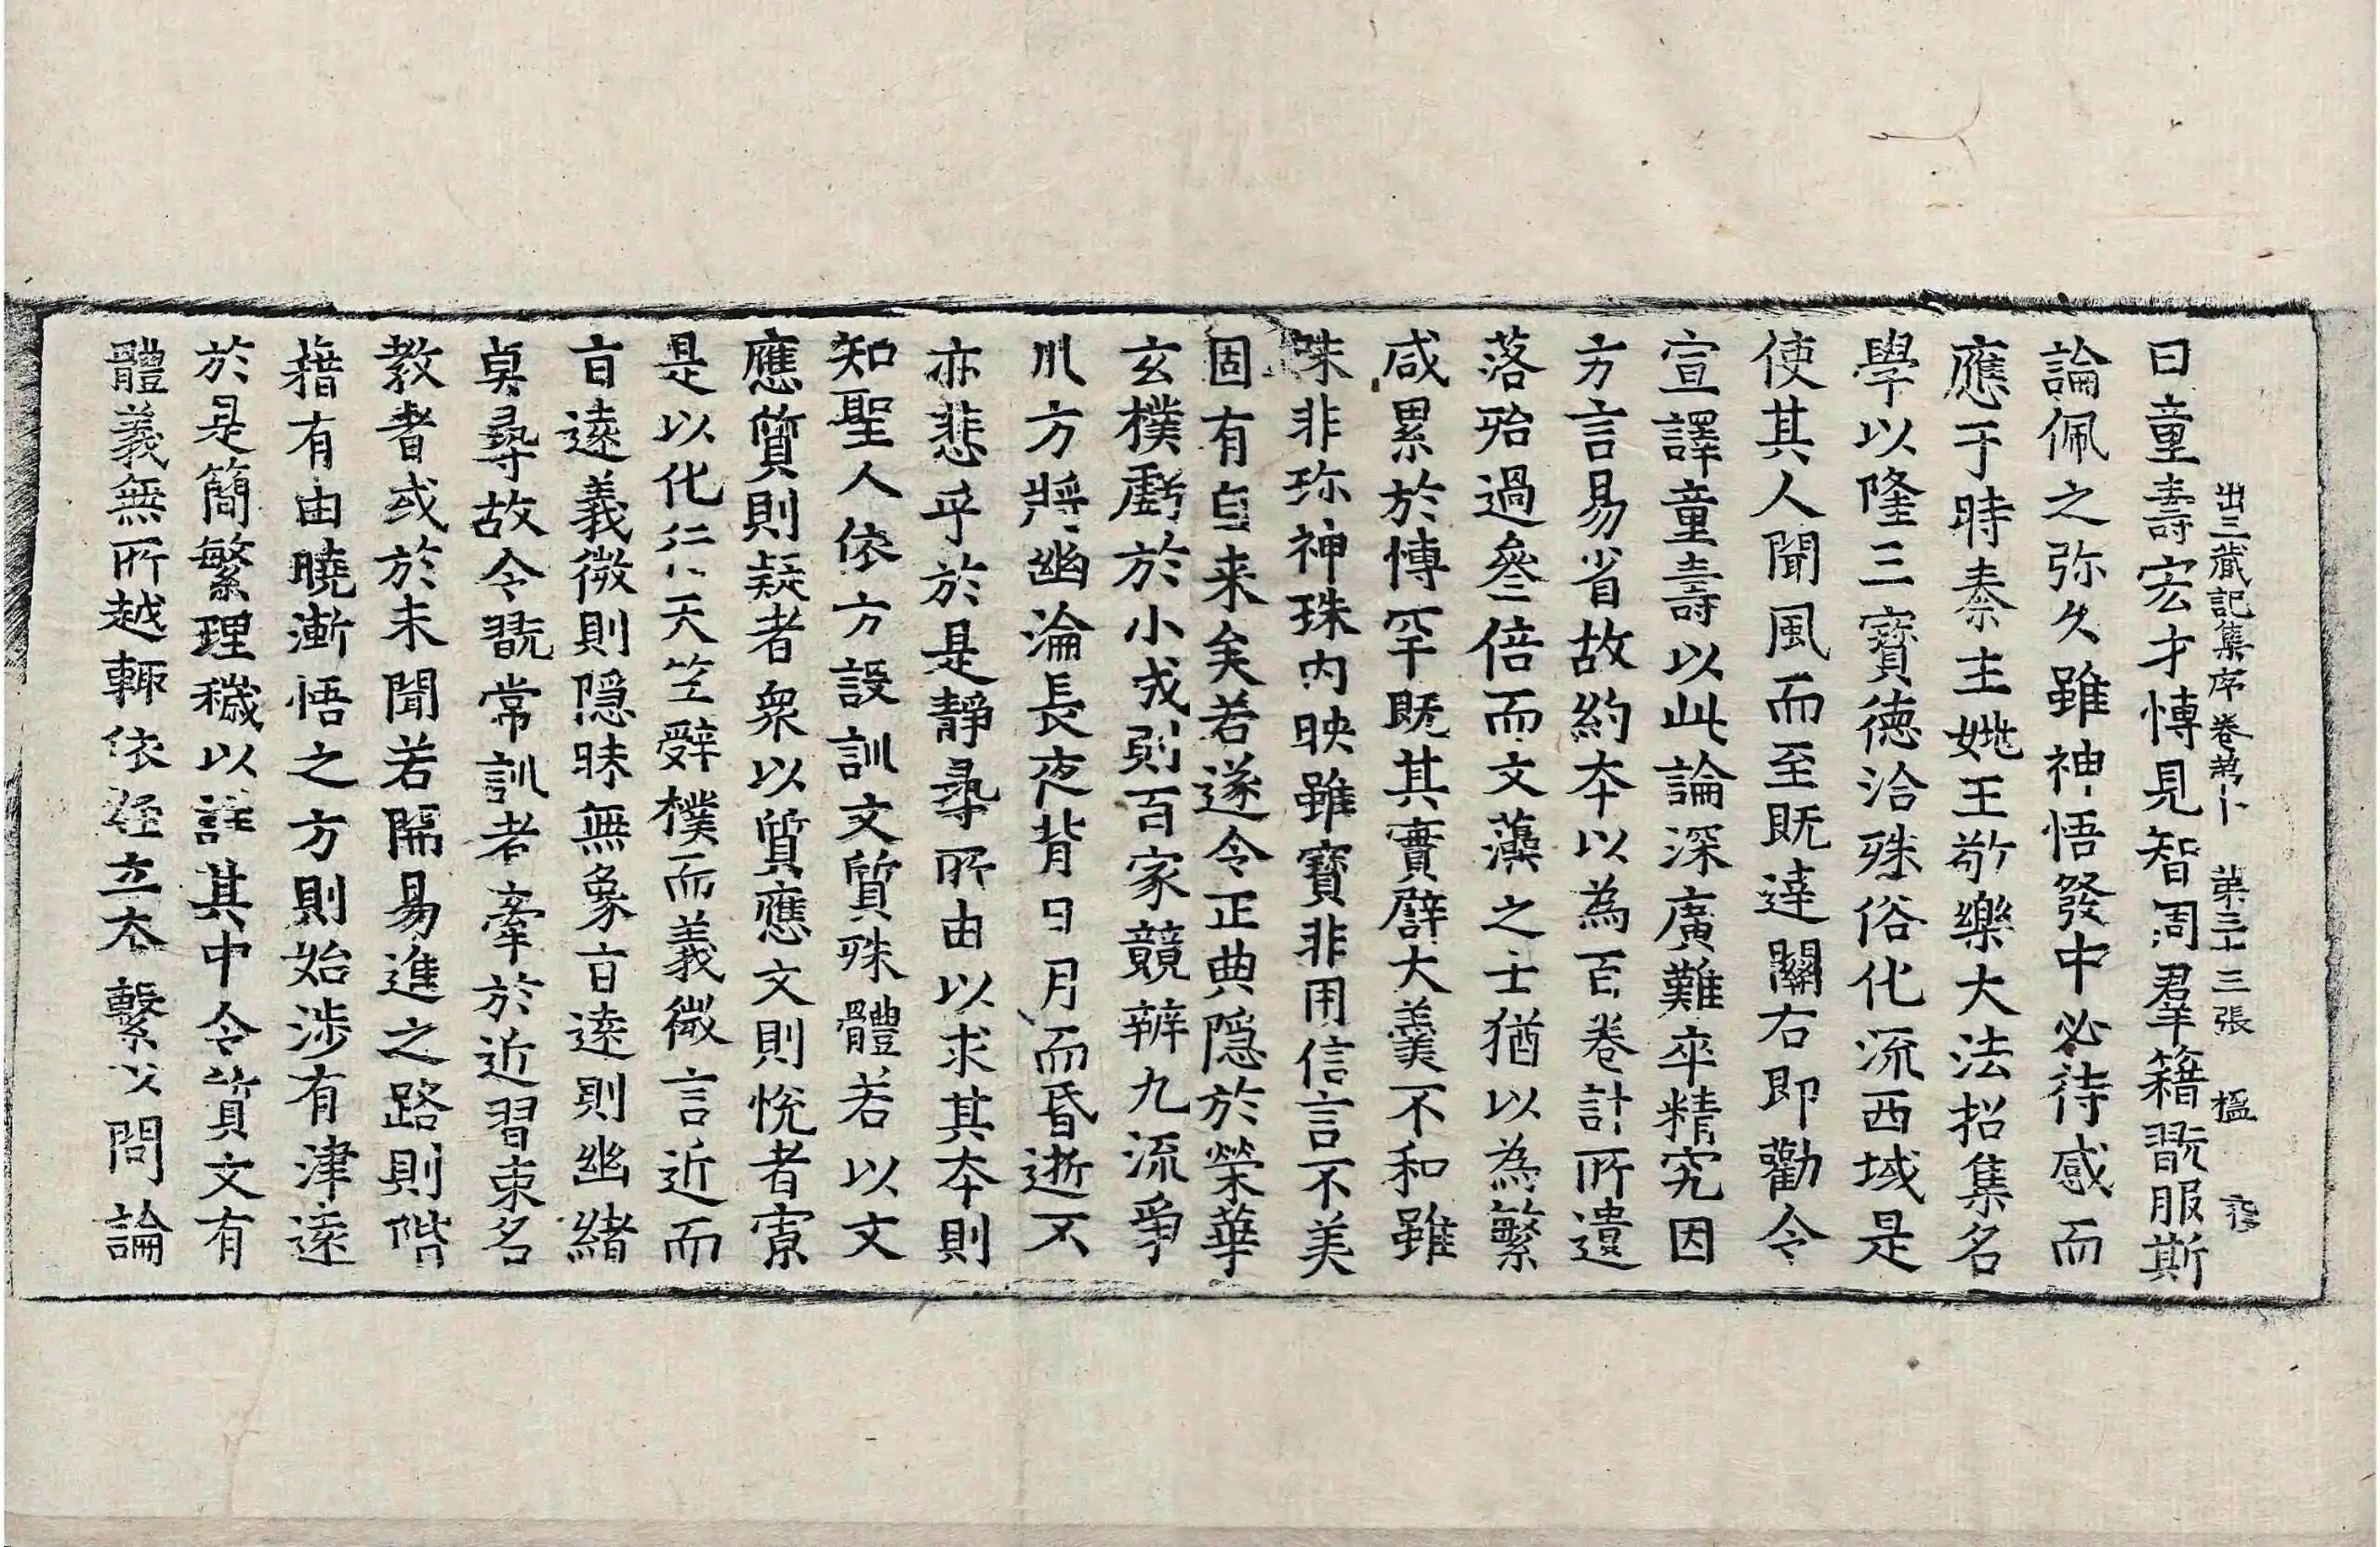 曰童壽宏才愽見智周羣籍翫服斯
出三藏記集序卷第十 第三十三張 楹
論佩之弥久雖神悟發中必待感而
應于時秦主姚王敬樂大法招集名
學以隆三寶德洽殊俗化流西域是
使其人聞風而至既達關右即勸令
宣譯童壽以此論深廣難卒精究因
方言易省故約夲以為百卷計所遺
落殆過叅倍而文藻之士猶以為繁
咸累於愽罕既其實譬大羹不和雖
味非珎神珠內映雖寶非用信言不美
固有自来矣若遂令正典隱於榮華
玄樸虧於小成則百家競辨九流爭
川方將幽淪長夜背日月而昏逝不
亦悲乎於是靜尋所由以求其夲則
知聖人依方設訓文質殊體若以文
應質則疑者衆以質應文則悅者寡
是以化行天竺辭樸而義微言近而
㫖遠義微則隱昧無象㫖遠則幽緒
莫尋故令翫常訓者牽於近習束名
教者或於未聞若開易進之路則階
藉有由曉漸悟之方則始涉有津遠
於是簡繁理穢以詳其中令質文有
體義無所越輙依經立夲繫以問論